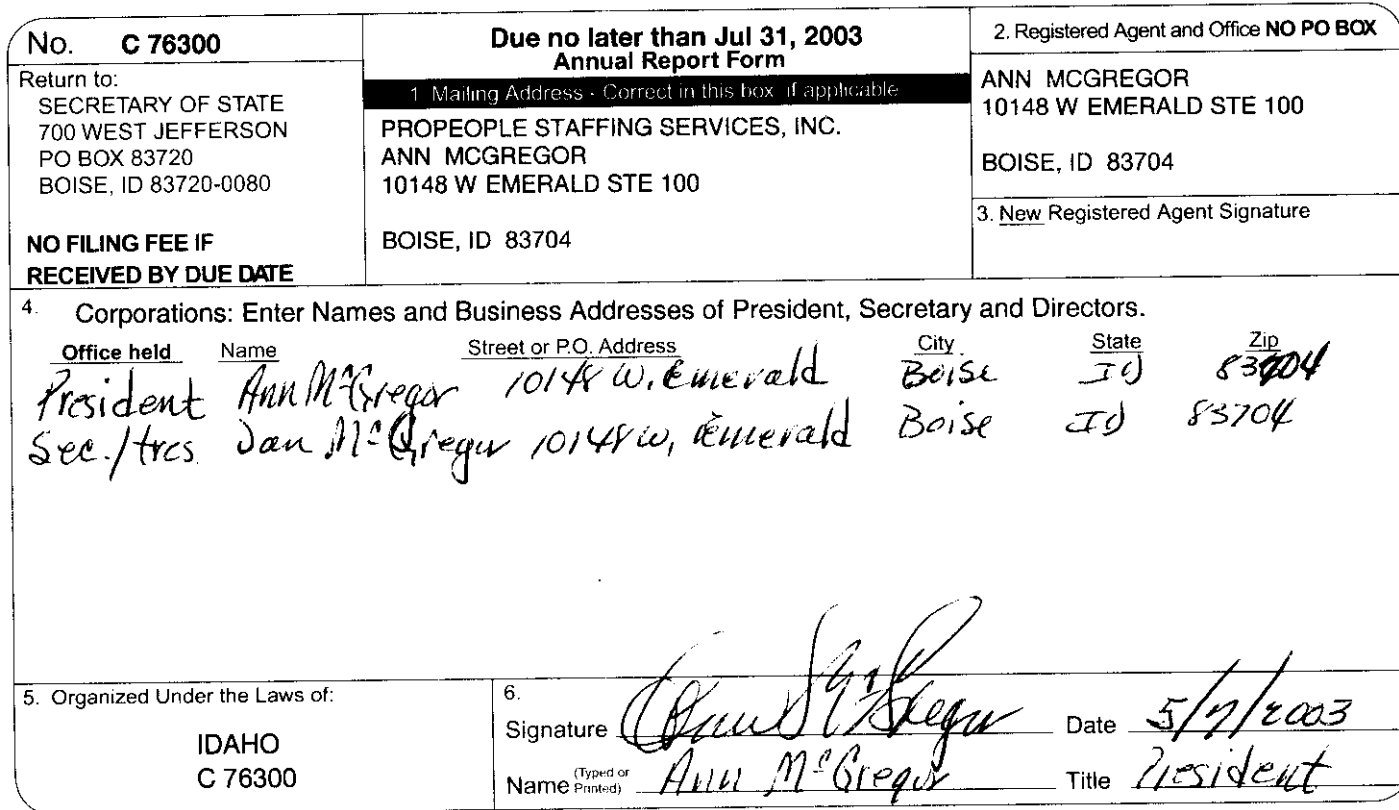 No. C 76300
Return to:
SECRETARY OF STATE
700 WEST JEFFERSON
PO BOX 83720
BOISE, ID 83720-0080
NO FILING FEE IF
RECEIVED BY DUE DATE
Due no later than Jul 31, 2003
Annual Report Form
1 Mailing Address - Correct in this box if applicable
PROPEOPLE STAFFING SERVICES, INC.
ANN MCGREGOR
10148 W EMERALD STE 100
BOISE, ID 83704
2. Registered Agent and Office NO PO BOX
ANN MCGREGOR
10148 W EMERALD STE 100
BOISE, ID 83704
3. New Registered Agent Signature
4. Corporations: Enter Names and Business Addresses of President, Secretary and Directors.
Office held Name Street or P.O. Address City State Zip
President Ann McGregor 10148 W. Emerald Boise ID 83704
Sec./tres Dan McGregor 10148 W, Emerald Boise ID 83704
5. Organized Under the Laws of:
IDAHO
C 76300
6.
Signature Ann McGregor Date 5/7/2003
Name (Typed or Printed) Ann McGregor Title President